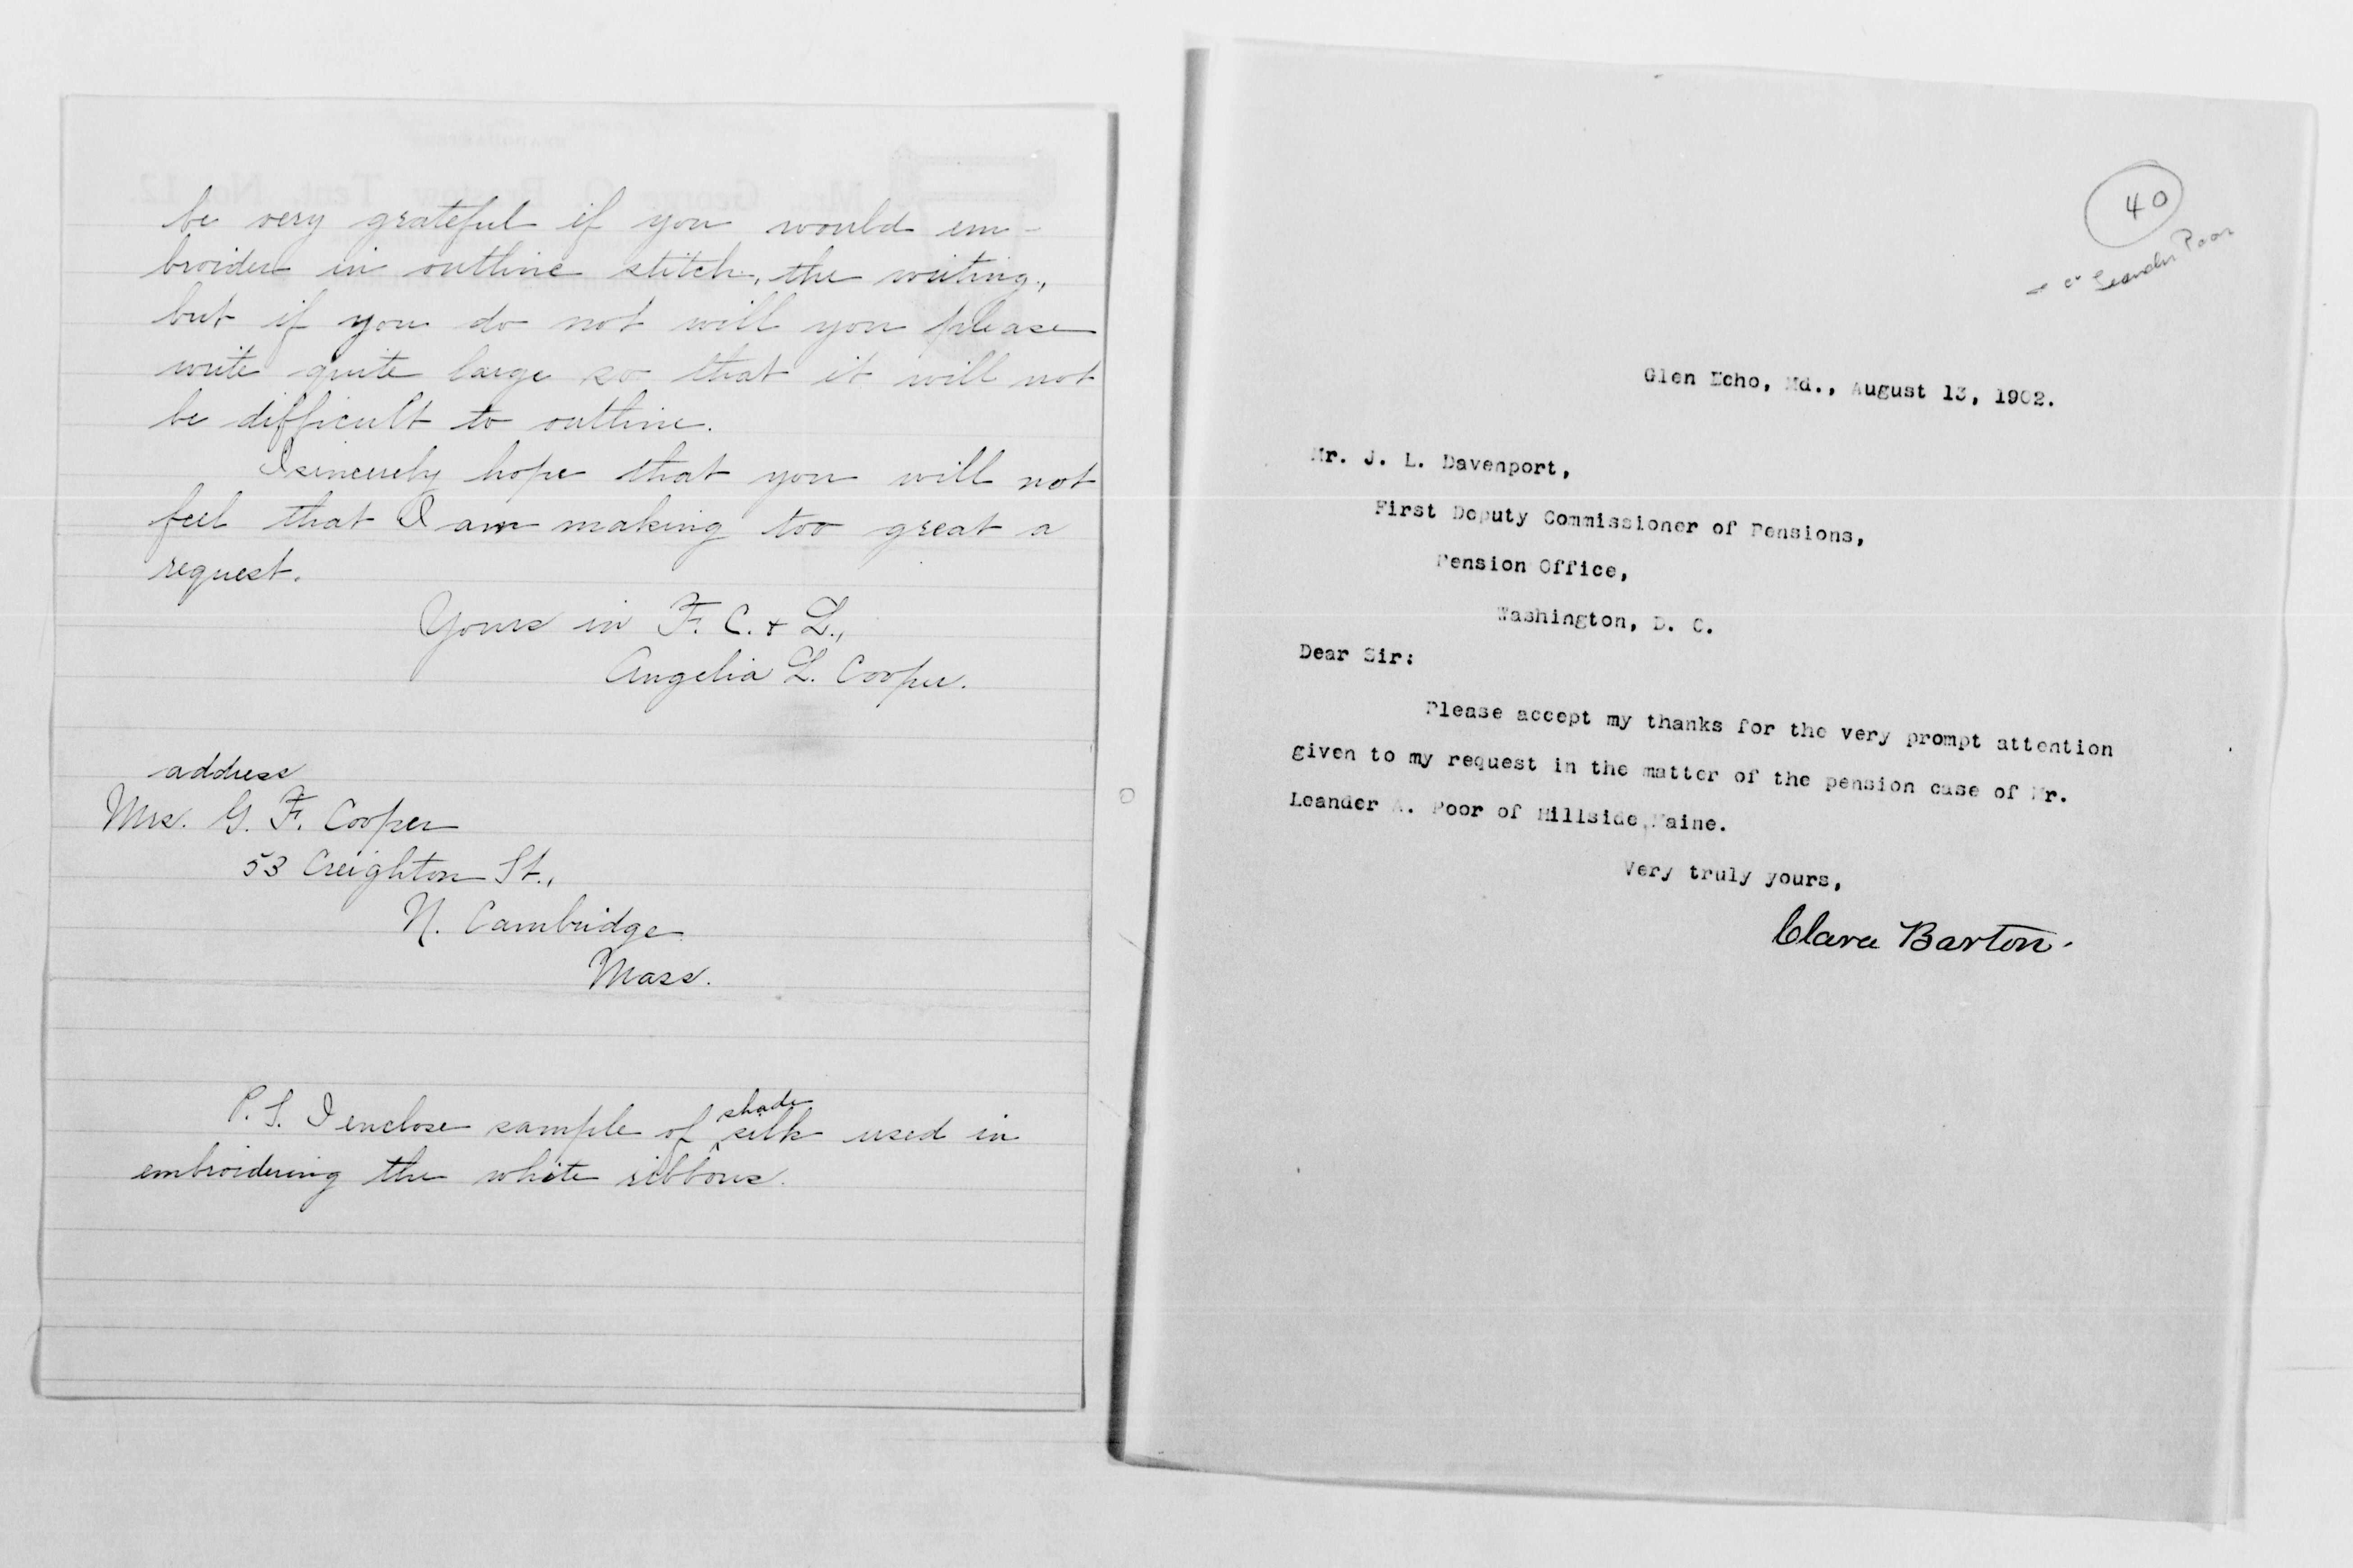 be very grateful if you would em-
broider in outline stitch, the writing,
but if you do not will you please
write quite large so that it will not
be difficult to outline.
I sincerely hope that you will not
feel that I am making too great a
request.
Yours in F. C. & L.,
Angelia L. Cooper.
address
Mrs. G. F. Cooper
53 Creighton St.,
N. Cambridge
Mass.
P. S. I enclose sample of shade silk used in
embroidering the white ribbons.
40
Leander Poor
Glen Echo, Md., August 13, 1902.
Mr. J. L. Davenport,
First Deputy Commissioner of Pensions,
Pension Office,
Washington, D. C.
Dear Sir:
Please accept my thanks for the very prompt attention
given to my request in the matter of the pension case of Mr.
Leander A. Poor of Hillside, Maine.
Very truly yours,
Clara Barton.